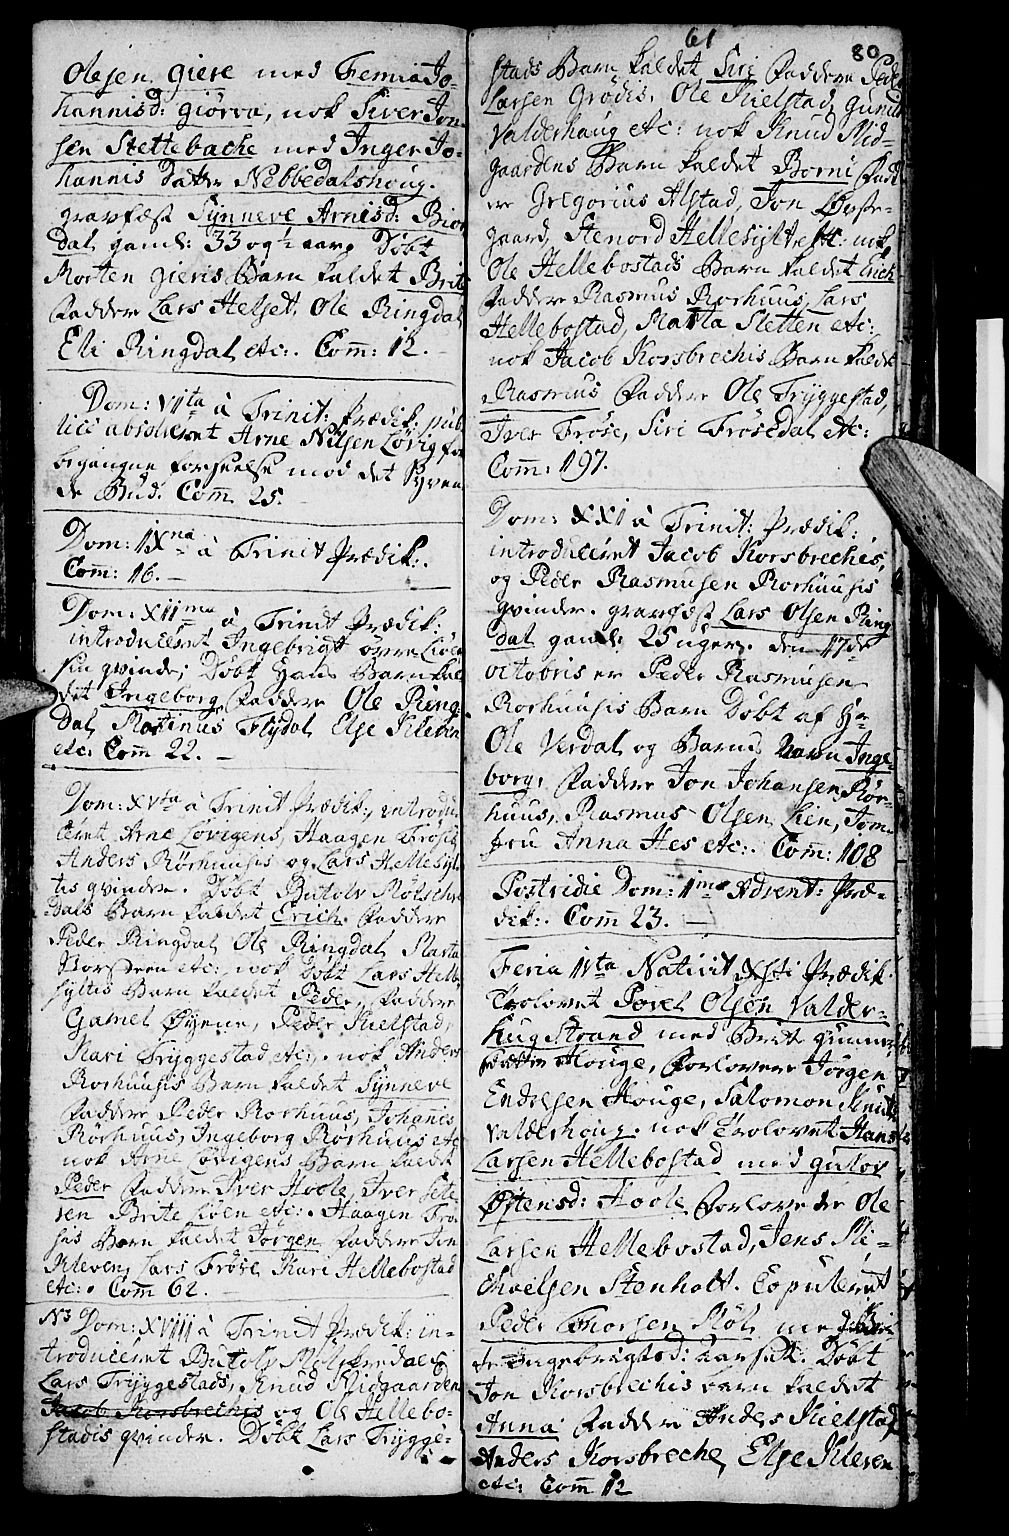 Olesen giere med Femia Jo-
hannisd: giørva, nok Siver Jon-
sen Stettebache med Inger Jo-
hannis Datter Nebbedalshoug.
gravfæst Synneve Arnisd: Bion
dal gaml: 33 og ½ aarg Døbt
Morten gieris Barn kaldet Brite
Faddere Lars Helset, Ole Ringdal
Eli Ringdal etc:. Com: 12.
Dom: VIIta à Trinit: Prædik: pub
licè absolveret Arne Nilsen Løvig for
begangne forseelse mod det Syven
de Bud. Com 25.
Dom: IXna à Trinit Prædik:.
Com: 16.
Dom: XIIma à Trinit Prædik:
introduceret Ingebrigt øvre Liøe
sin qvinde; Døbt Hans Barn kal
det Ingeborg Faddere Ole Ring
dal, Martinus Flydal Else Kleven
etc: Com 22.
Dom: XVta à Trinit Prædik:, introdu
ceret Arne Løvigens, Haagen Frøsis
Anders Rørhuusis og Lars Hellesyl
tis qvinder. Døbt Butolv Mølskre
dals Barn kaldet Erich. Faddere
Peder Ringdal Ole Ringdal, Marta
etc: nok Døbt Lars Helle
syltes Barn kaldet Peder, Faddere
Gamel Øyene, Peder Kielstad,
Kari Tryggestad etc:. nok Anders
Rorhuusis Barn kaldet Synneve
Faddere Peder Rorhuus, Johanis
Rørhuus, Ingeborg Rørhuus etc
nok Arne Løvigens Barn kaldet
Peder Faddere Iver Hoole, Iver Sete
ren Brite Løen etc:. Haagen Frø
sis Barn kaldet Jørgen Faddere Jon
Kleven, Lars Frøse, Kari Hellebostad
etc:. Com 62.
N3 Dom: XVIII à Trinit Prædik: in-
troduceret Butolv Mølskredals
Lars Tryggestads, Knud Midgaarden
Jacob Korsbrechis og Ole Hellebo-
stadis qvinder. Døbt Lars Trygge-
61
80
stads Barn kaldet Siri Faddere Peder
Larsen Grodis, Ole Kielstad, Gunild
Valderhaug etc: nok Knud Mid-
gaardens Barn kaldet Borni Fadd
ere Gregorius Alstad, Jon Øvste-
gaard, Stenord Hellesylt etc: nok
Ole Hellebostads Barn kaldet Erich
Faddere Rasmus Rorhuus, Lars
Hellebostad, Marta Sletten etc:
nok Jacob Korsbrechis Barn kaldet
Rasmus Faddere Ole Tryggestad,
Iver Frøse, Siri Frøsedal etc:
Com: 197.
Dom: XXI à Trinit: Prædik:
introduceret Jacob Korsbrechis,
og Peder Rasmusen Rorhuusis
qvinder. gravfæst Lars Olsen Ring
dal gaml: 25 uger. den 17de
octobris er Peder Rasmusen
Rorhuusis Barn Døbt af Hr
Ole Verdal og Barnes navn Inge-
borg, Faddere Jon Johansen Rør-
huus, Rasmus Olsen Lien, Jom-
fru Anna Hes etc:. Com: 108
Postridie Dom: 1ma Advent: Præ-
dik:. Com 23.
Feria IVta Nativit Xsti Prædik.
Trolovet Povel Olsøn Valder-
hug Strand med Brite gunner
Datter Houge, Forlovere Jørgen
Endresen Houge, Salomon Knuds
Valderhoug. nok Trolovet Hans
Larsen Hellebostad med gulov
Østensd: Hoole Forlovere Ole
Larsen Hellebostad, Jens Mi-
chelsen Stenholt. Copuleret
Peder Thorsen Møl, med Bri
te Ingebrigtsd: aarsæt. Døbt
Jon Korsbrechis barn kaldet
Anna Faddere Anders Kielstad,
Anders Korsbreche, Else Kleven
etc: Com 12